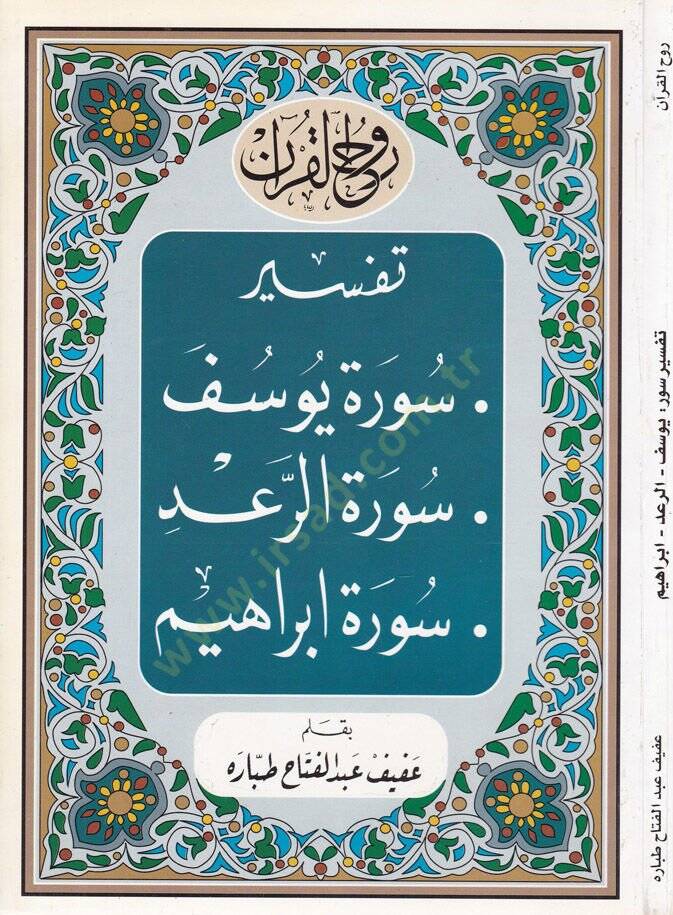 روح القرآن
تفسير
. سُورَة يُوسُفَ
. سُورَة الرَّعْدِ
. سُورَة ابراهيم
بقلم
عَفيف عَبد الفتّاح طبّاره
www.irsad.com.tr
روح القرآن
تفسير سور: يوسف - الرعد - ابراهيم
عفيف عبد الفتاح طباره